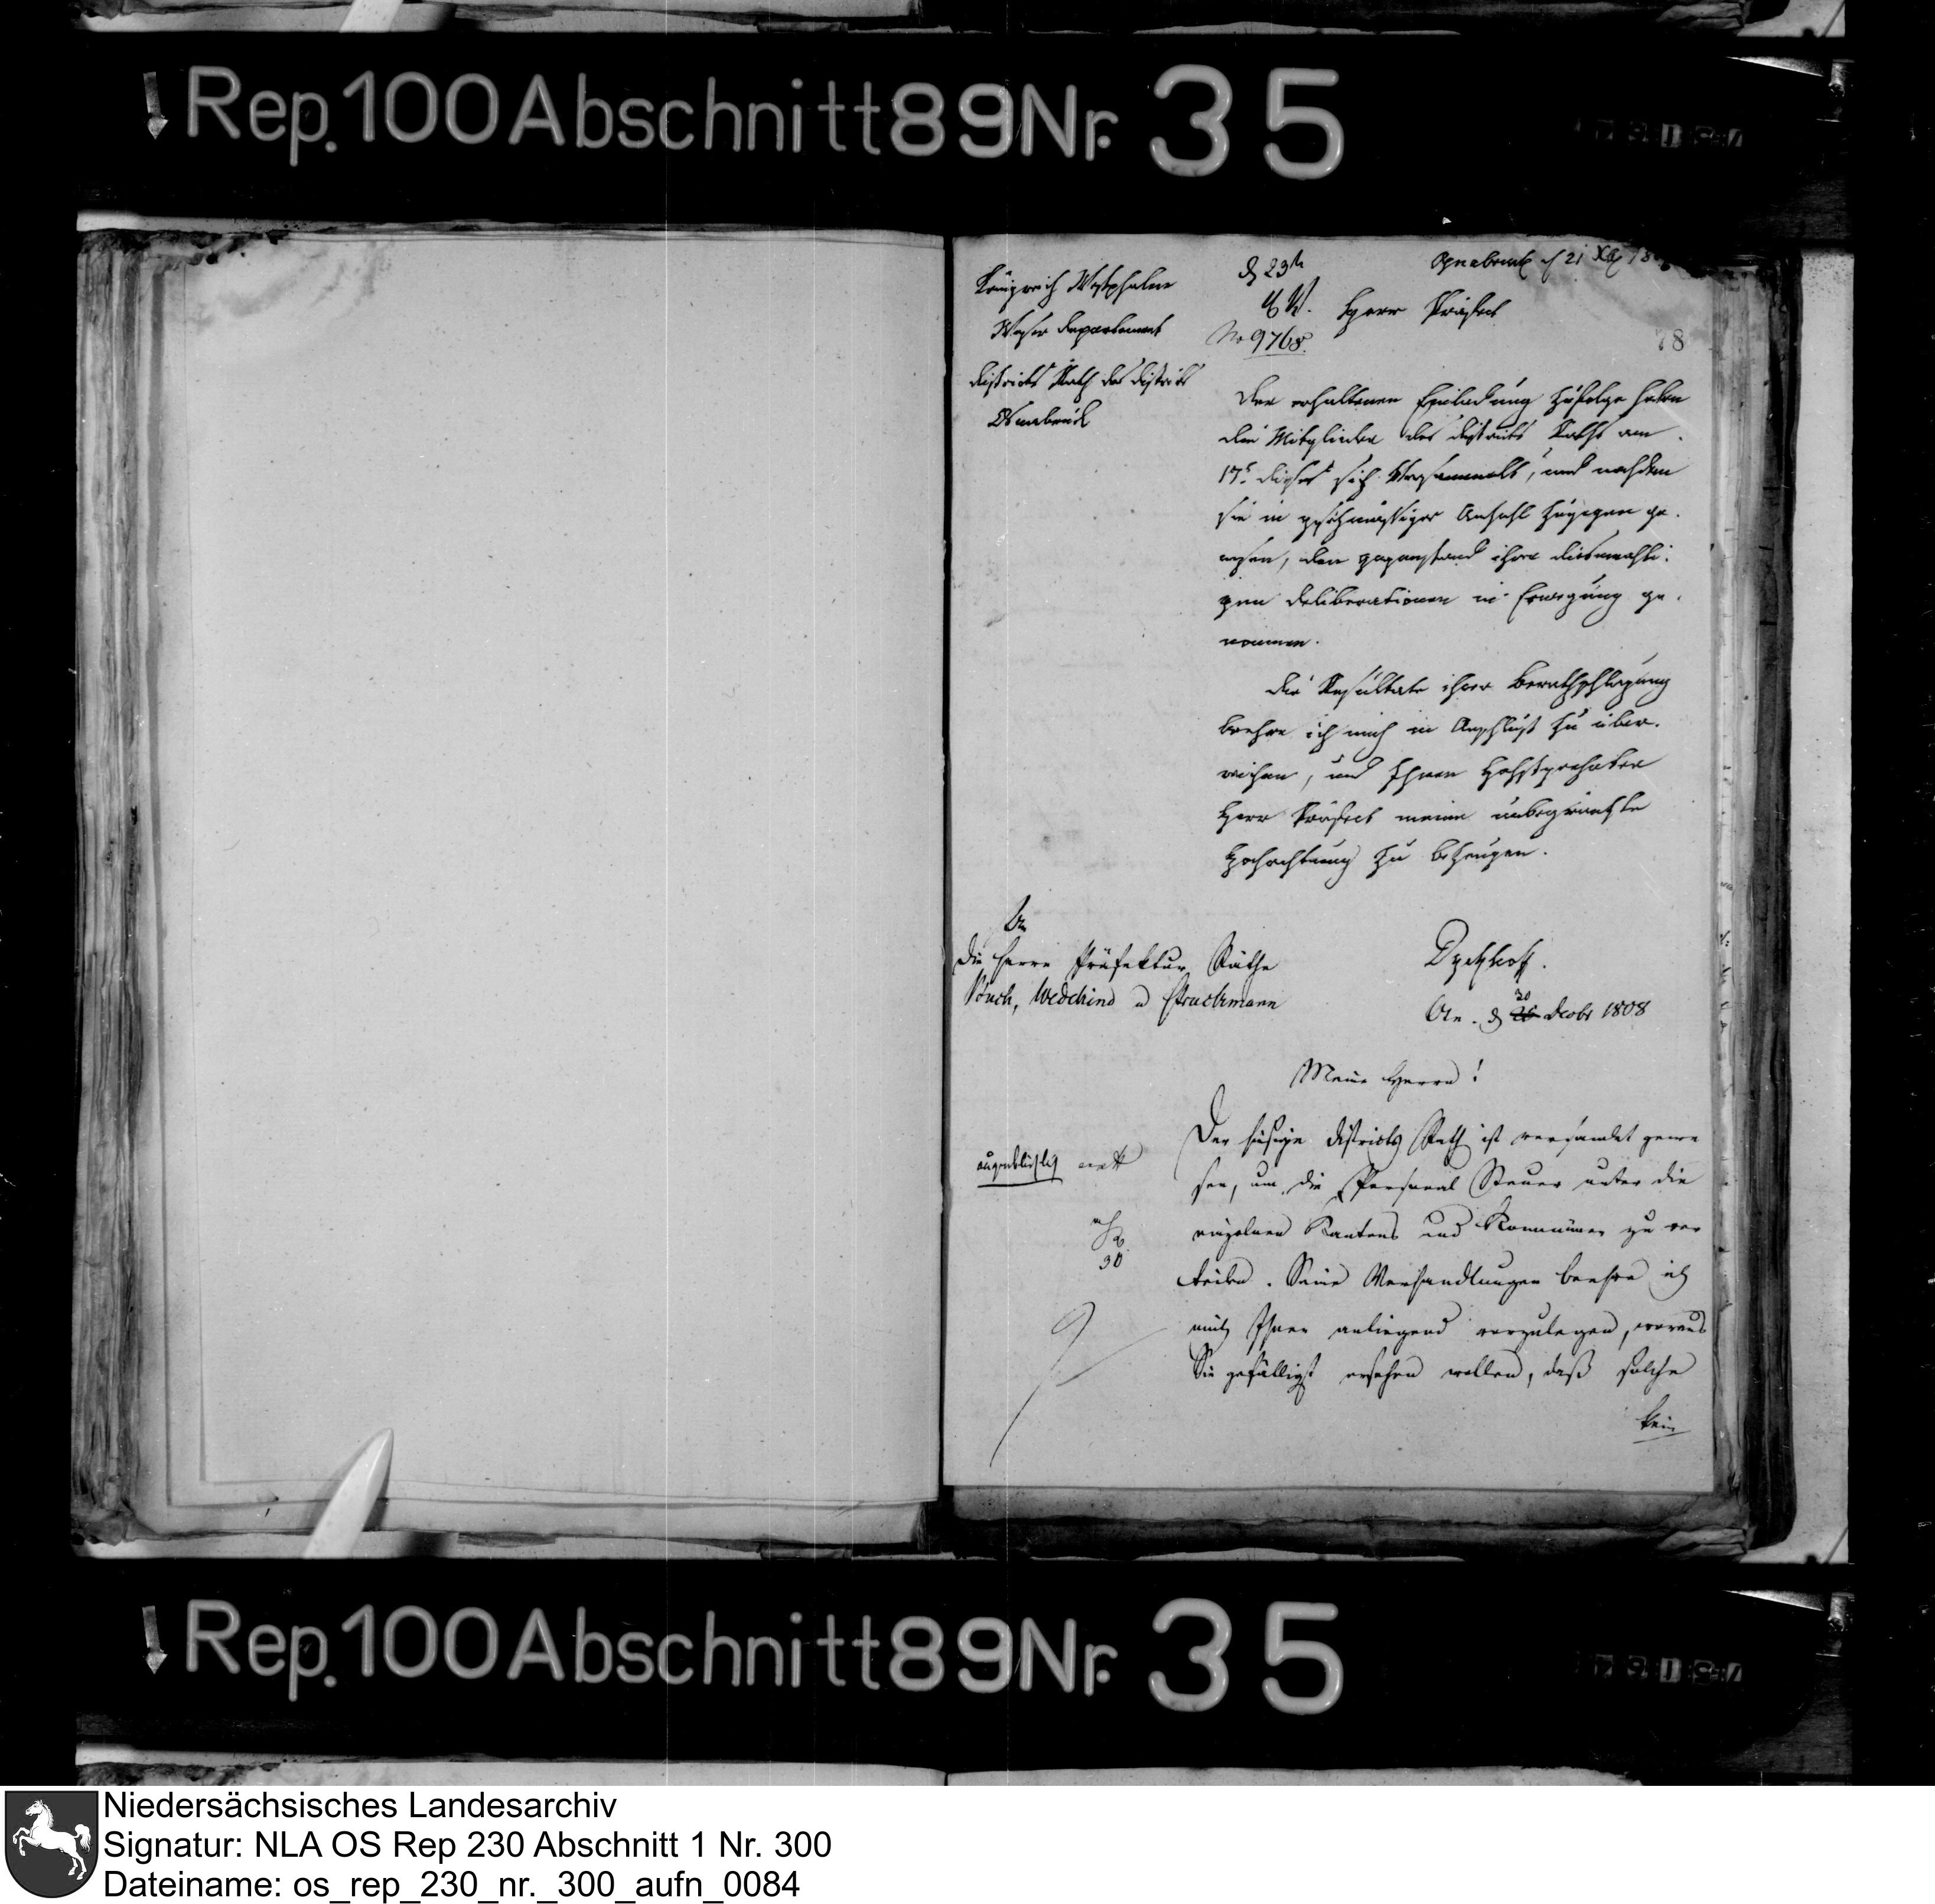 Rep. 100 Abschnitt 89 Nr. 35
Königreich Westphalen
Weser Departement
Districts Rath des Districts
Osnabrück
Osnabrück d 21 Xbr 18
No 9768.
Herr Präfect
78
Der erhaltenen Einladung zufolge haben
die Mitglieder des Districts Raths am
17t. dieses sich versammelt, und nachdem
sie in gesetzmässiger Anzahl zugegen ge-
wesen, den Gegenstand ihrer diesmahli-
gen Deliberationen in Erwegung ge-
nommen.
Die Resultate ihrer Berathschlagung
beehre ich mich in Anschluß zu über-
reichen, und Ihnen Hochgeehrter
Herr Präfect meine unbegränzte
Hochachtung zu bezeugen.
An
die Herrn Präfektur Räthe
Struckmann
Osn. d 30 Decbr 1808
Meine Herrn!
Der hiesige Districts Rath ist versamlet gewe
sen, um die Personal Steuer unter die
einzelnen Kantons und Kommünen zu ver
teilen. Seine Verhandlungen beehre ich
mich Ihnen anliegend vorzulegen, woraus
Sie gefälligst ersehen wollen, daß solche
kein
augenblicklich
30
Rep. 100 Abschnitt 89 Nr. 35
Niedersächsisches Landesarchiv
Signatur: NLA OS Rep 230 Abschnitt 1 Nr. 300
Dateiname: os_rep_230_nr._300_aufn_0084